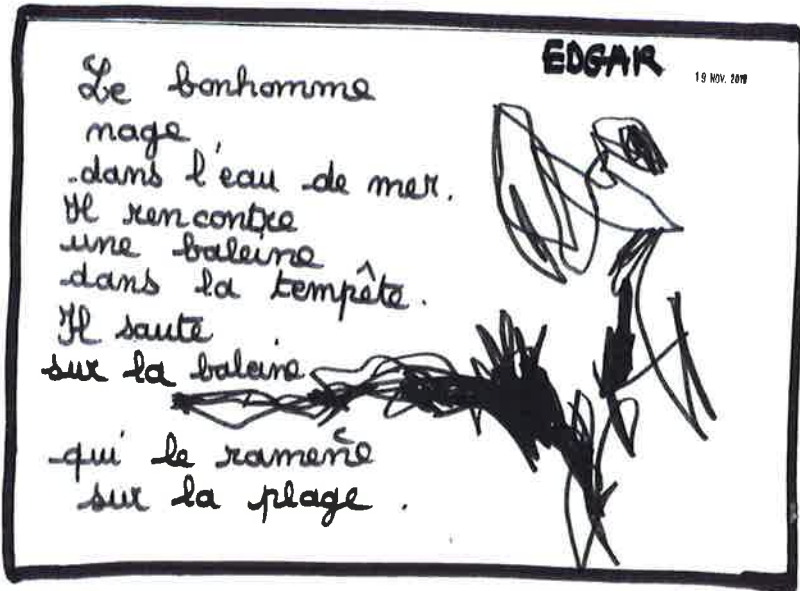 EDGAR
19 NOV. 2019
Le bonhomme
nage
dans l'eau de mer.
Il rencontre
une baleine
dans la tempête.
Il saute
sur la baleine
qui le ramène
sur la plage.